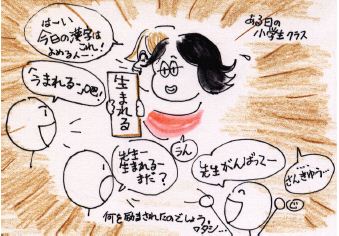 ある日の
小学生クラス
はーい
今日の漢字は
よめる人…
これ!
うまれるーッ!
生まれる
うん
先生ー
生まれるー
まだ?
先生がんばってー
…
さんきゅう…
何を励まされたのでしょう、
ワタシ…